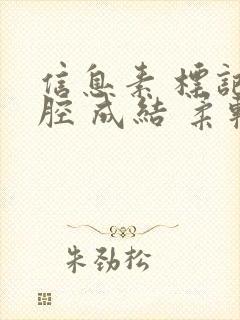 信息素 標記
腔 成結 柔
朱劲松